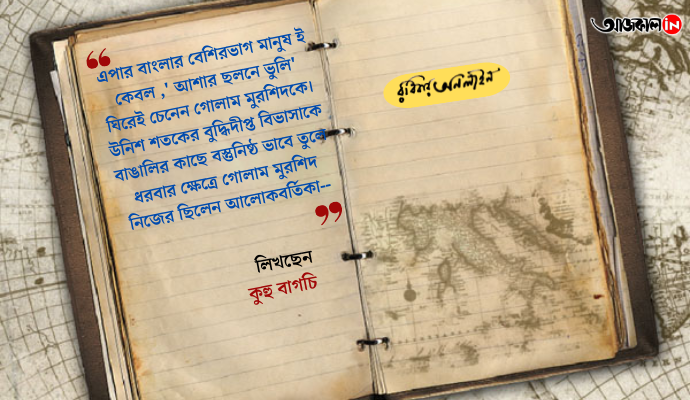 আজকাল in
এপার বাংলার বেশিরভাগ মানুষ ই
কেবল ,' আশার ছলনে ভুলি'
ঘিরেই চেনেন গোলাম মুরশিদকে।
উনিশ শতকের বুদ্ধিদীপ্ত বিভাসাকে
বাঙালির কাছে বস্তুনিষ্ঠ ভাবে তুলে
ধরবার ক্ষেত্রে গোলাম মুরশিদ
নিজের ছিলেন আলোকবর্তিকা--
লিখছেন
কুহু বাগচি
রবিবার অনলাইন